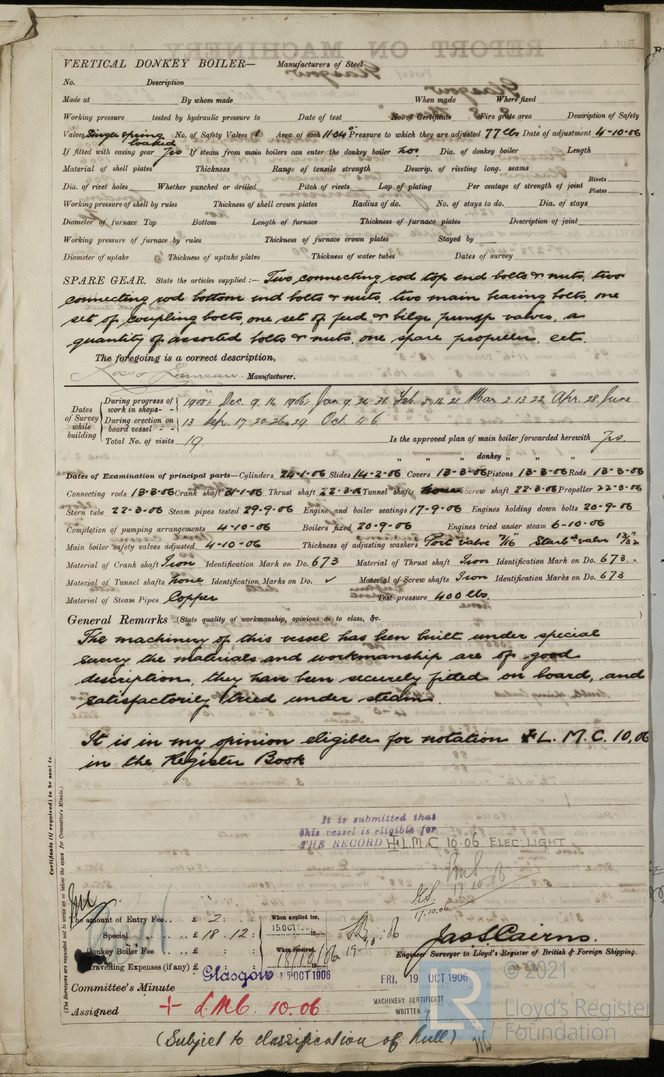 VERTICAL DONKEY BOILER— Manufacturers of Steel
No. Description
Made at By whom made When made Where fixed
Working pressure tested by hydraulic pressure to Date of test No. of Certificate Fire grate area Description of Safety
Valves Single spring loaded No. of Safety Valves 1 Area of each 11.04" Pressure to which they are adjusted 77 lbs Date of adjustment 4-10-06
If fitted with easing gear Yes If steam from main boilers can enter the donkey boiler no. Dia. of donkey boiler Length
Material of shell plates Thickness Range of tensile strength Descrip. of riveting long. seams
Dia. of rivet holes Whether punched or drilled Pitch of rivets Lap of plating Per centage of strength of joint Rivets Plates
Working pressure of shell by rules Thickness of shell crown plates Radius of do. No. of stays to do. Dia. of stays
Diameter of furnace Top Bottom Length of furnace Thickness of furnace plates Description of joint
Working pressure of furnace by rules Thickness of furnace crown plates Stayed by
Diameter of uptake Thickness of uptake plates Thickness of water tubes Dates of survey
SPARE GEAR. State the articles supplied :— Two connecting rod top end bolts & nuts, two
connecting rod bottom end bolts & nuts, two main bearing bolts, one
set of coupling bolts, one set of feed & bilge pump valves, a
quantity of assorted bolts & nuts, one spare propeller. etc.
The foregoing is a correct description,
Ross & Duncan Manufacturer.
Dates of Survey while building
During progress of work in shops - - 1905: Dec. 9. 14. 1906: Jan. 9. 24. 31. Feb. 5. 14. 21. Mar 2. 13. 22. Apr. 28. June
During erection on board vessel - - - 13 Sep. 17. 20. 26. 29. Oct. 4. 6.
Total No. of visits 19 Is the approved plan of main boiler forwarded herewith Yes
" " " donkey " " "
Dates of Examination of principal parts—Cylinders 24-1-06 Slides 14-2-06 Covers 13-3-06 Pistons 13-3-06 Rods 13-3-06
Connecting rods 13-3-06 Crank shaft 31-1-06 Thrust shaft 22-3-06 Tunnel shafts none Screw shaft 22-3-06 Propeller 22-3-06
Stern tube 22-3-06 Steam pipes tested 29-9-06 Engine and boiler seatings 17-9-06 Engines holding down bolts 20-9-06
Completion of pumping arrangements 4-10-06 Boilers fixed 20-9-06 Engines tried under steam 6-10-06
Main boiler safety valves adjusted 4-10-06 Thickness of adjusting washers Port valve 7/16" Starb valve 13/32"
Material of Crank shaft Iron Identification Mark on Do. 673 Material of Thrust shaft Iron Identification Mark on Do. 673.
Material of Tunnel shafts none Identification Marks on Do. ✓ Material of Screw shafts Iron Identification Marks on Do. 673
Material of Steam Pipes Copper Test pressure 400 lbs.
General Remarks (State quality of workmanship, opinions as to class, &c.
The machinery of this vessel has been built under special
survey the materials and workmanship are of good
description, they have been securely fitted on board, and
satisfactorily tried under steam.
It is in my opinion eligible for notation ✠ L. M. C. 10.06
in the Register Book
Certificate (if required) to be sent to
(The Surveyors are requested not to write on or below the space for Committee's Minute.)
It is submitted that
this vessel is eligible for
THE RECORD ✠ L.M.C 10.06 ELEC. LIGHT.
17.10.06
17.10.06
The amount of Entry Fee.. £ 2 : : When applied for,
Special .. £ 18 . 12 : 15 OCT 19
Donkey Boiler Fee £ : : When received,
Travelling Expenses (if any) £ : : 18/10/06 19-10-06
Jas. S. Cairns.
Engineer Surveyor to Lloyd's Register of British & Foreign Shipping.
Committee's Minute Glasgow 15 OCT 1906 FRI. 19 OCT 1906
Assigned + L.M.C. 10.06
MACHINERY CERTIFICATE
WRITTEN.
(Subject to classification of hull)
LR
© 2021
Lloyd's Register
Foundation